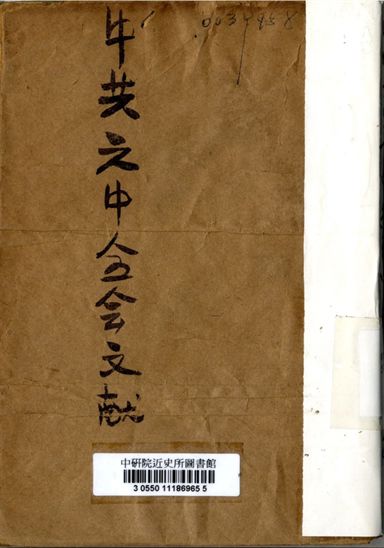 中共六中全会文献
中研院近史所圖書館
3 0550 11186965 5